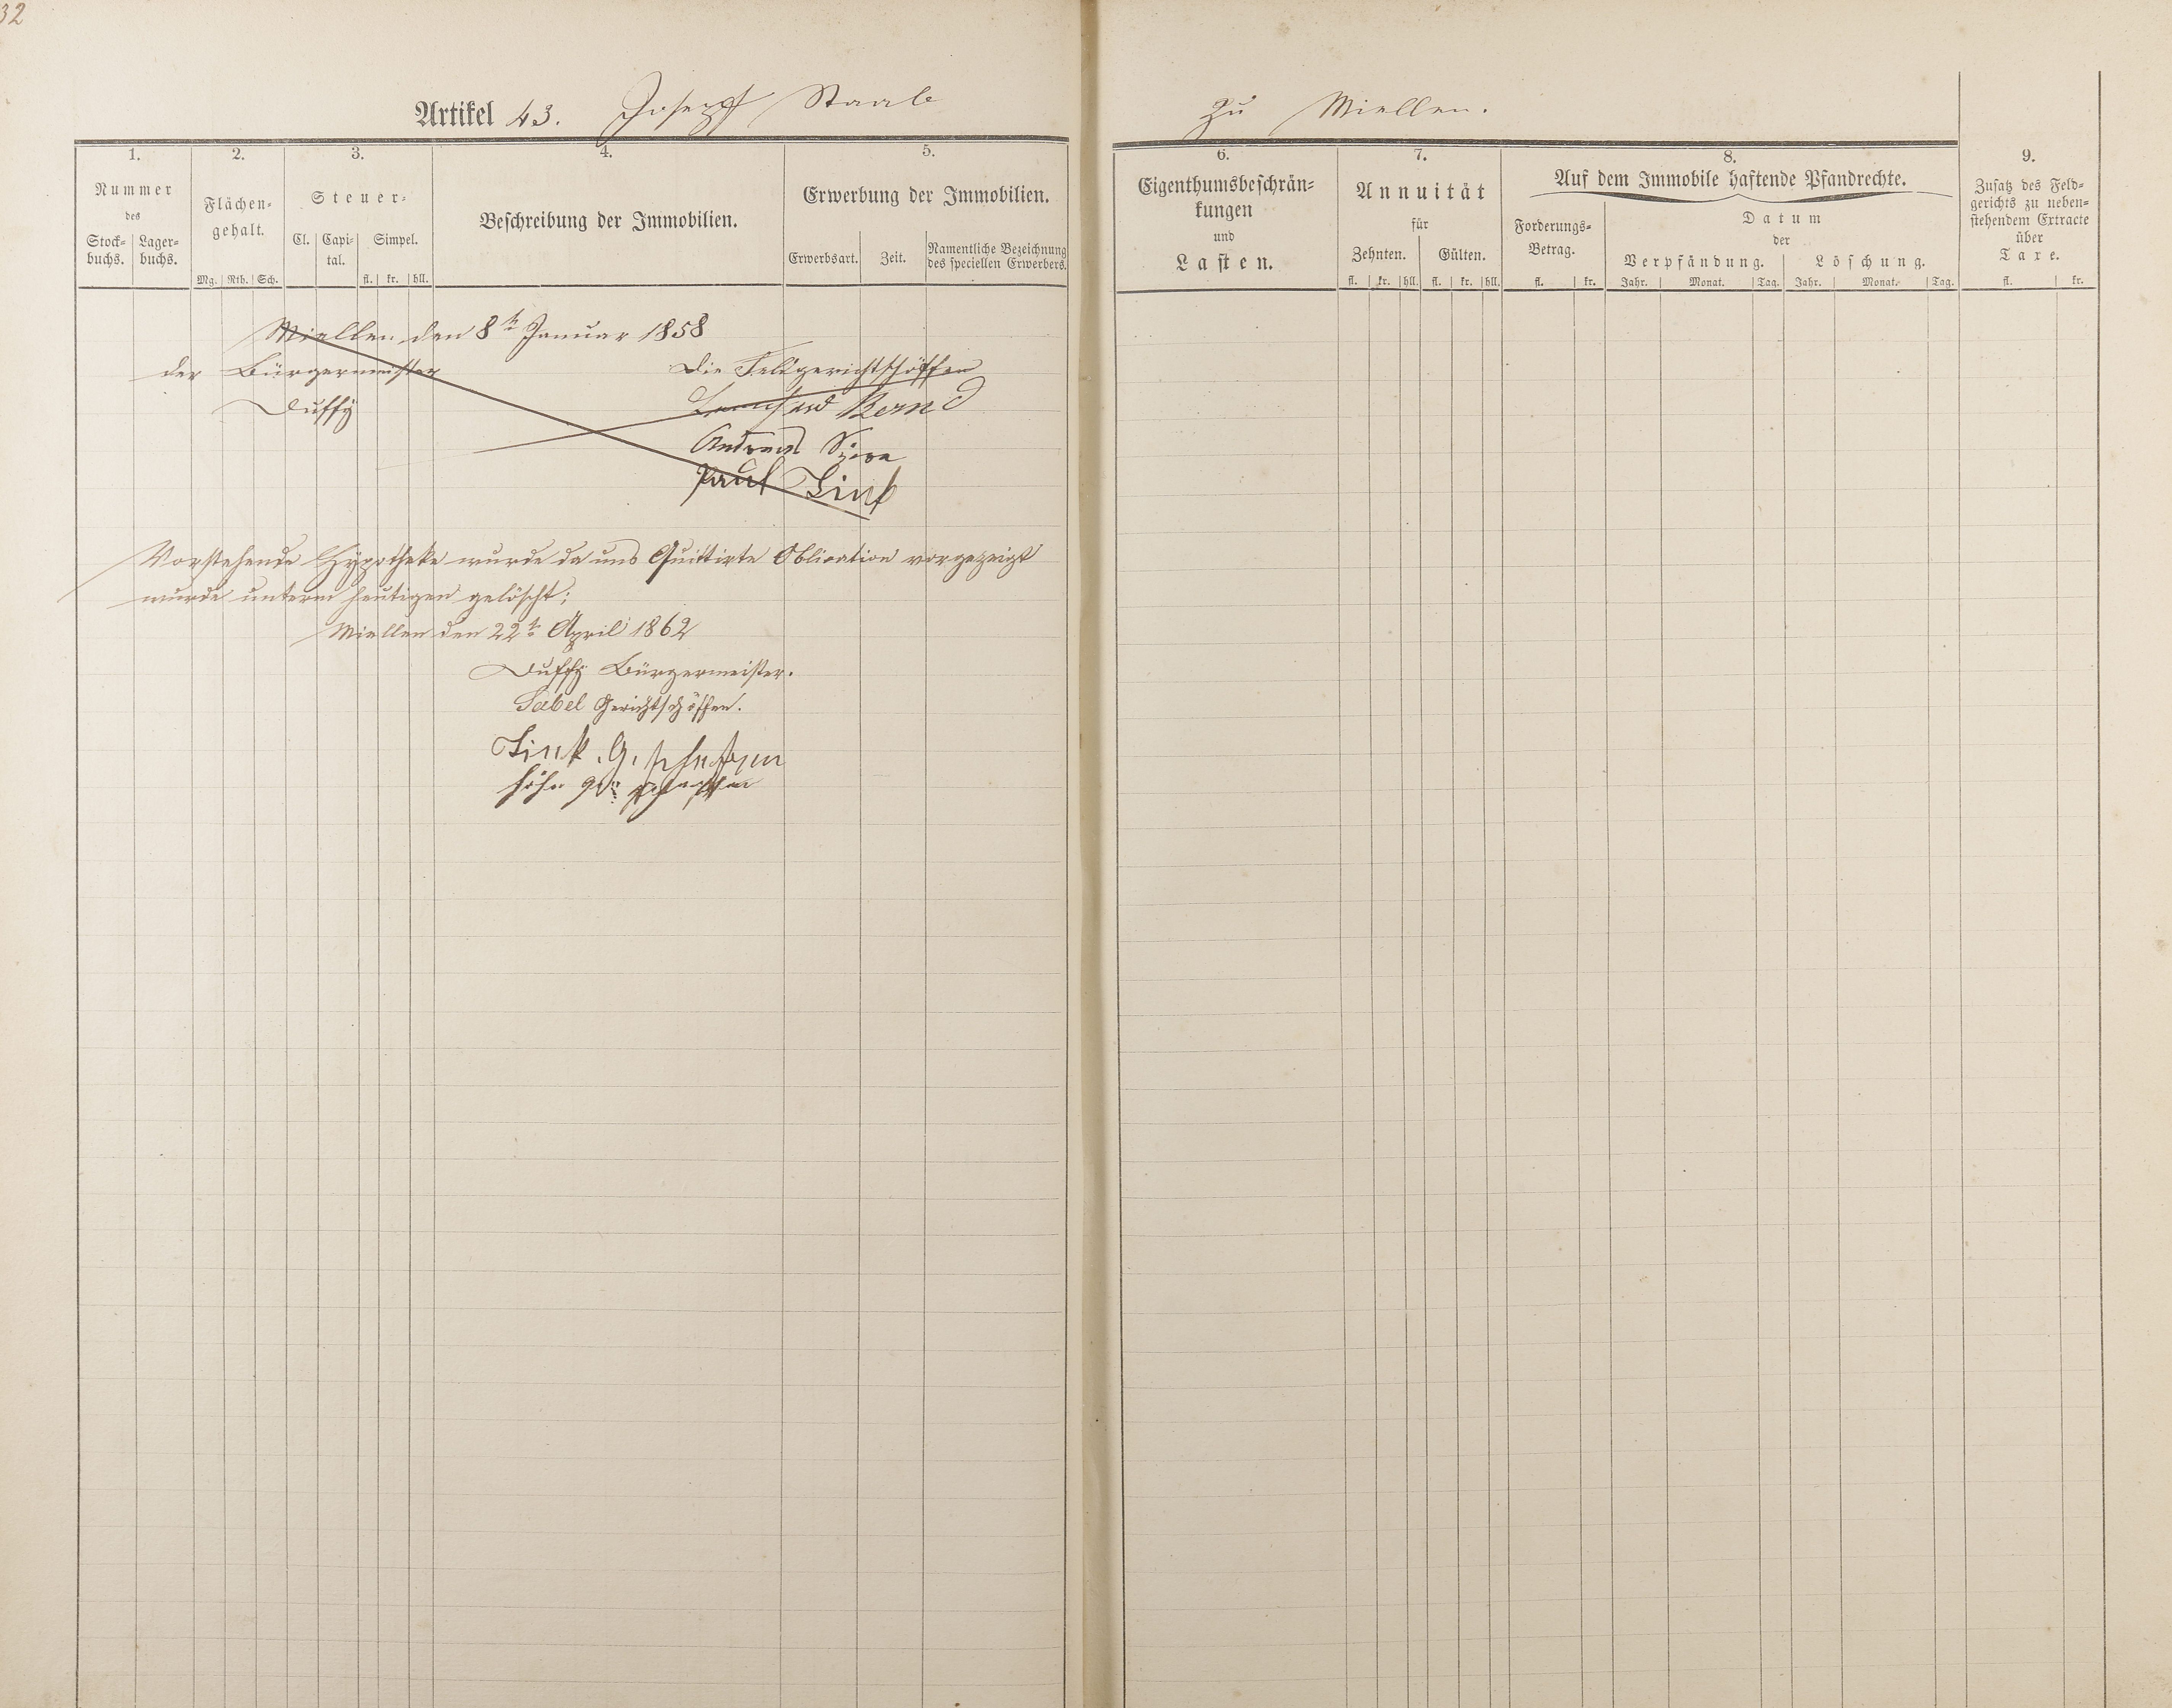 32
Artikel 43. Joseph Staab
zu Miellen.
1. 2. 3. 4. 5.
Nummer des
Stock=buchs. Lager=buchs.
Flächen=gehalt.
Mg. Rth. Sch.
Steuer=
Cl. Capi=tal. Simpel.
fl. kr. hll.
Beschreibung der Immobilien.
Erwerbung der Immobilien.
Erwerbsart. Zeit. Namentliche Bezeichnung des speciellen Erwerbers.
6. 7. 8. 9.
Eigenthumsbeschrän=
kungen
und
Lasten.
Annuität
für
Zehnten. Gülten.
fl. kr. hll. fl. kr. hll.
Auf dem Immobile haftende Pfandrechte.
Forderungs=
Betrag.
fl. kr.
Datum
der
Verpfändung. Löschung.
Jahr. Monat. Tag. Jahr. Monat. Tag.
Zusatz des Feld=
gerichts zu neben=
stehendem Extracte
über
Taxe.
fl. kr.
Miellen den 8te Januar 1858
der Bürgermeister Die Feldgerichtschöffen
Duffy Bernd
Andreas
Paul Link
Vorstehende Hypotheke wurde da uns Quittirte Oblication vorgezeigt
wurde unterm heutigen gelöscht;
Miellen den 22te April 1862
Duffy Bürgermeister.
Sabel Gerichtschöffen.
Link. G.